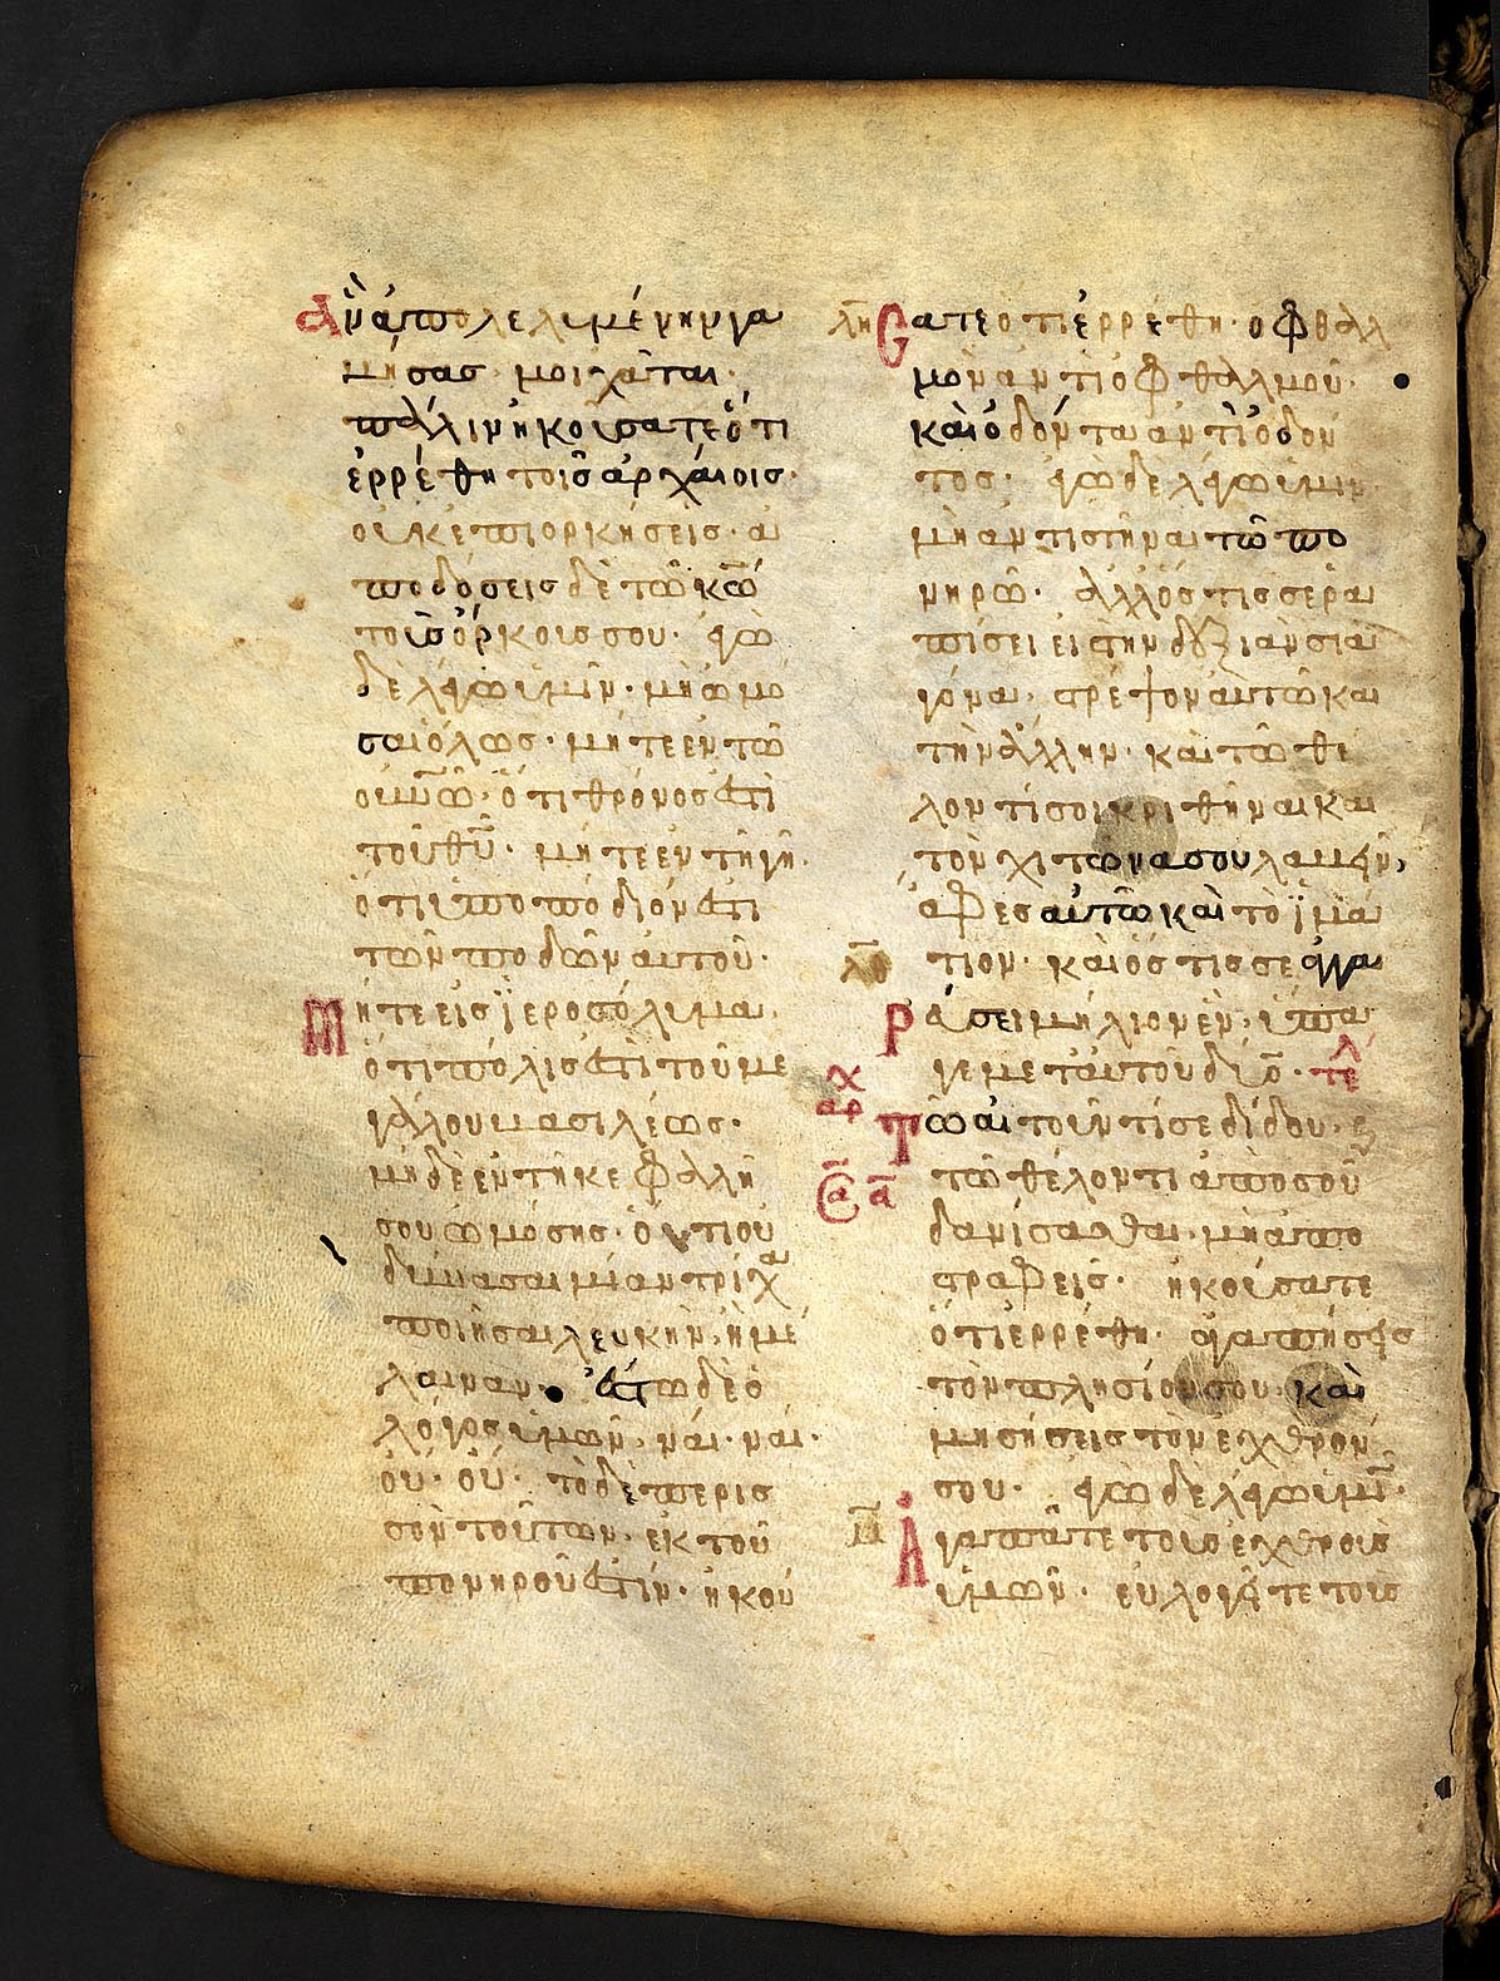 ἂν ἀπολελυμένην γα
μήσας· μοιχᾶται·
πάλιν ἠκούσατε ὅτι
ἐρρέθη τοῖς ἀρχαίοις·
οὐκ ἐπιορκήσεις· ἀ
ποδόσεις δὲ τῶ κ̅ω̅
τοὺς ὅρκους σου· ἐγὼ
δὲ λέγω ὑμῖν· μὴ ὠμό
σαι ὅλως· μήτε ἐν τῶ
οὐν̅ῶ· ὅτι θρόνος ἐστὶ
τοῦ θ̅υ̅· μήτε ἐν τῆ γῆ·
ὅτι ὑποπόδιόν ἐστι
τῶν ποδῶν αὐτοῦ·
Μήτε εἰς ϊεροσόλυμα·
ὅτι πόλις ἐστὶ τοῦ με
γάλου βασιλέως·
μηδὲ ἐν τῆ κεφαλῆ
σου ὠμόσης· ὅτι οὐ
δύνασαι μίαν τρίχα
ποιῆσαι λευκὴν, ἢ μέ
λαιναν· ἔστω δὲ ὁ
λόγος ὑμῶν, ναί· ναί·
οὐ· οὔ· τὸ δὲ περισ
σὸν τούτων· ἐκ τοῦ
πονηροῦ ἐστίν· ἠκού
λη Σατε ὅτι ἐρρέθη· ὀφθαλ
μὸν ἀντὶ ὀφθαλμοῦ·
καὶ ὀδόντα ἀντὶ ὀδόν
τος· ἐγὼ δὲ λέγω ὑμῖν
μὴ ἀντιστῆναι τῶ πο
νηρῶ· ἀλλ' ὅστις σε ρα
πίσει εἰς τὴν δεξιὰν σια
γόνα, στρέψον αὐτῶ και
τὴν ἄλλην· καὶ τῶ θέ
λοντί σοι κριθῆναι και
τὸν χιτῶνα σου λαβεῖν,
ἄφες αὐτῶ καὶ τὸ ϊμά
λθ τιον· καὶ ὅστις σε ἀγγα
Ράσει μίλιον ἓν, ὕπα
γε μετ' αὐτοῦ δύο· τελ
αρχ Τῶ αἰτοῦντί σε δίδου· καὶ
τῶ θέλοντι ἀπὸ σοῦ
δανίσασθαι· μὴ ἀπο
στραφεῖς· ἠκούσατε
ὅτι ἐρρέθη· ἀγαπήσεις
τὸν πλησίον σου· καὶ
μισήσεις τὸν ἐχθρόν
σου· ἐγὼ δὲ λέγω ὑμῖν·
μ Ἀγαπᾶτε τοὺς ἐχθροὺς
ὑμῶν· εὐλογεῖτε τοὺς